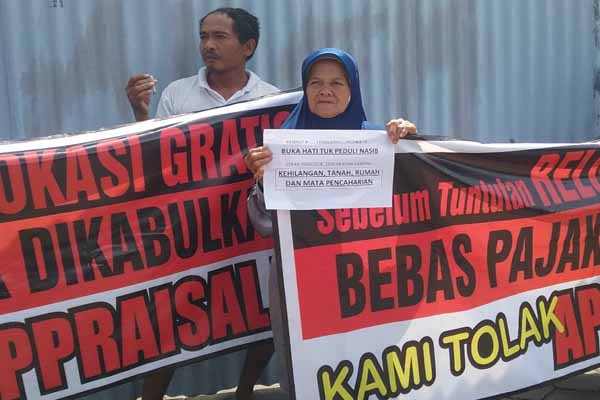 OKASI GRATIS
DIKABULKA
PPRAISAL
BUKA HATI TUK PEDULI NASIB
KEHILANGAN, TANAH, RUMAH
DAN MATA PENCAHARIAN
Sebelum Tuntutan RELO
BEBAS PAJAK
KAMI TOLAK AP